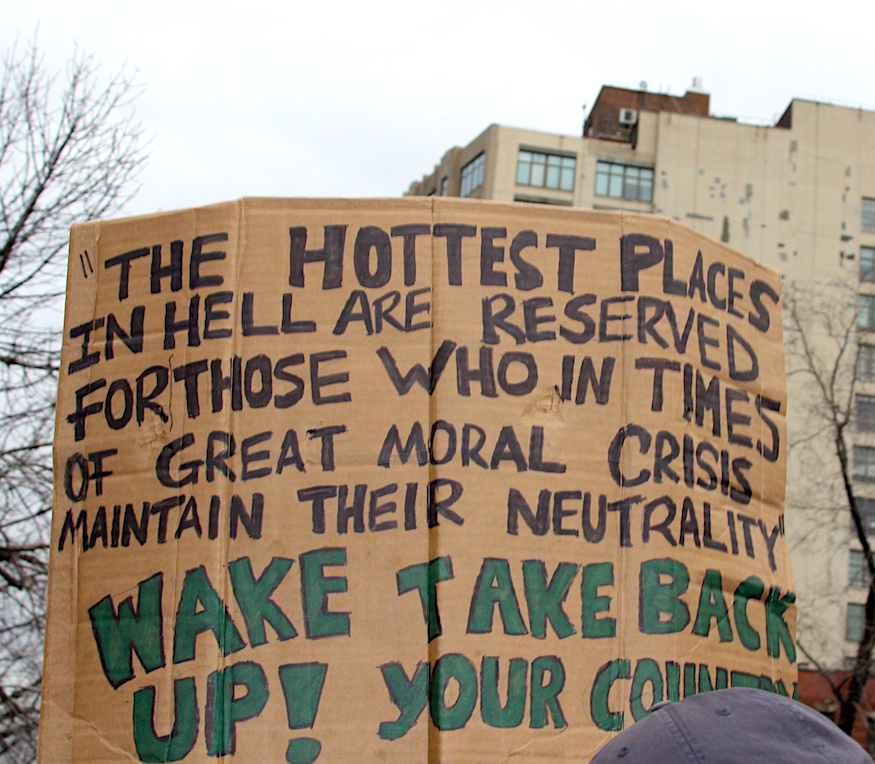 "THE HOTTEST PLACES
IN HELL ARE RESERVED
FOR THOSE WHO IN TIMES
OF GREAT MORAL CRISIS
MAINTAIN THEIR NEUTRALITY"
WAKE TAKE BACK
UP! YOUR COUNTRY